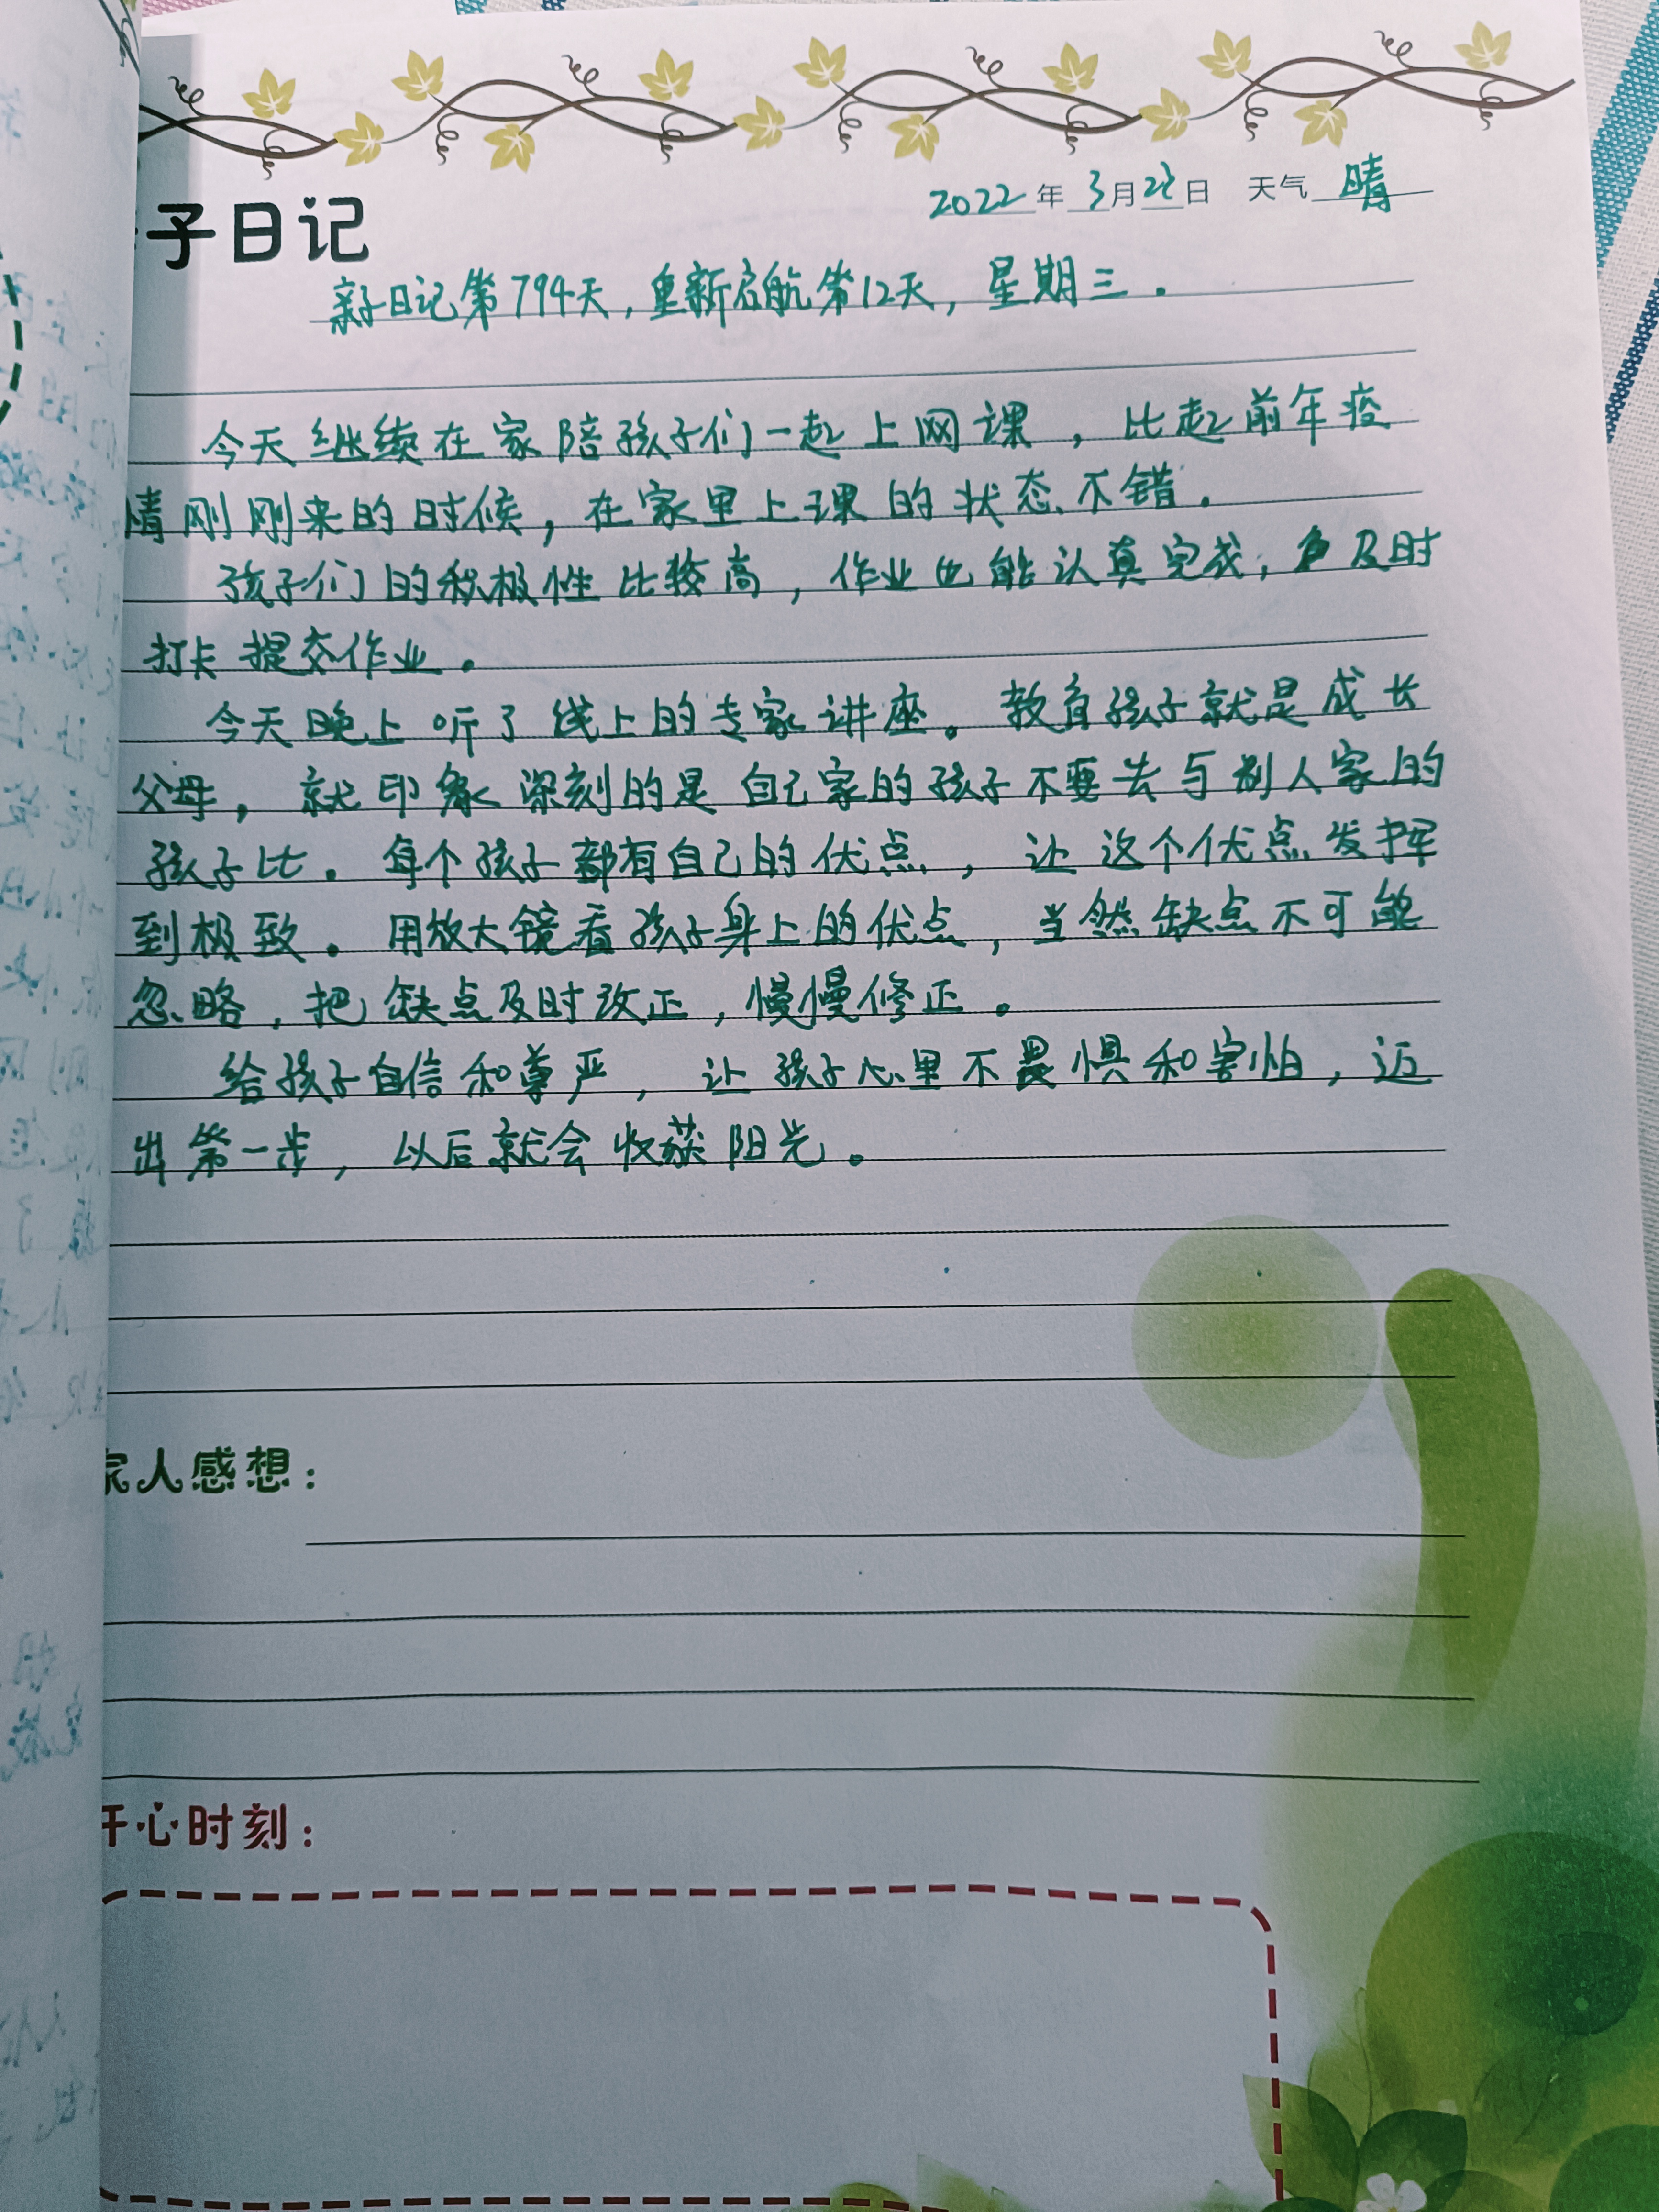 子日记
2022年3月23日 天气 晴
亲子日记第794天,重新启航第12天,星期三.
今天继续在家陪孩子们一起上网课,比起前年疫
情刚刚来的时候,在家里上课的状态不错.
孩子们的积极性比较高,作业也能认真完成,及时
打卡提交作业。
今天晚上听了线上的专家讲座。教育孩子就是成长
父母,就印象深刻的是自己家的孩子不要去与别人家的
孩子比.每个孩子都有自己的优点,让这个优点发挥
到极致.用放大镜看孩子身上的优点,当然缺点不可能
忽略,把缺点及时改正,慢慢修正。
给孩子自信和尊严,让孩子心里不畏惧和害怕,迈
出第一步,以后就会收获阳光。
家人感想:
开心时刻: